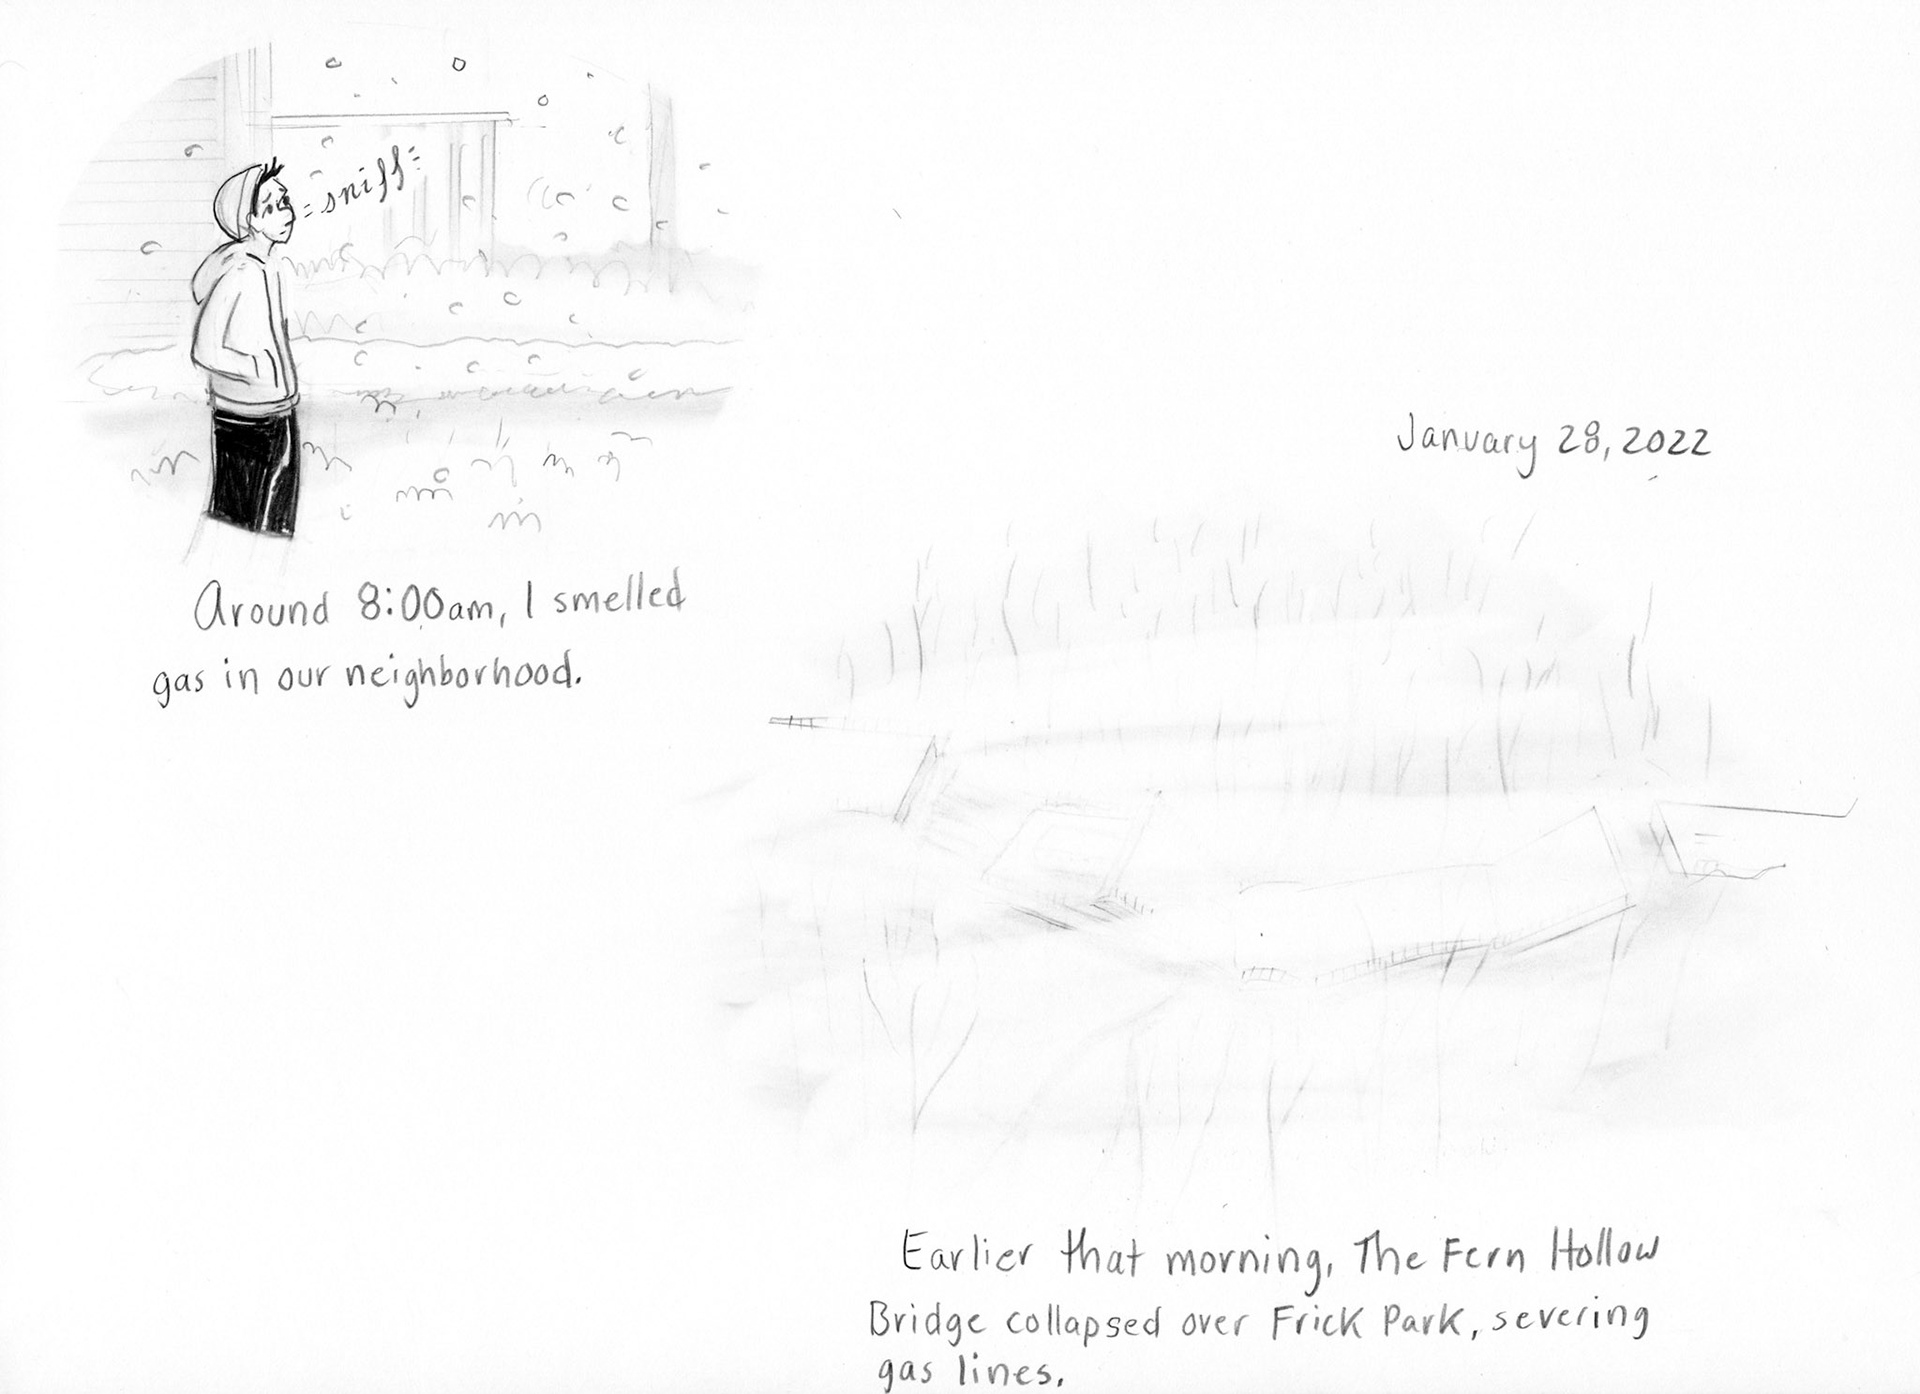 sniff
Around 8:00am, I smelled
gas in our neighborhood.
January 28, 2022
Earlier that morning, The Fern Hollow
Bridge collapsed over Frick Park, severing
gas lines.